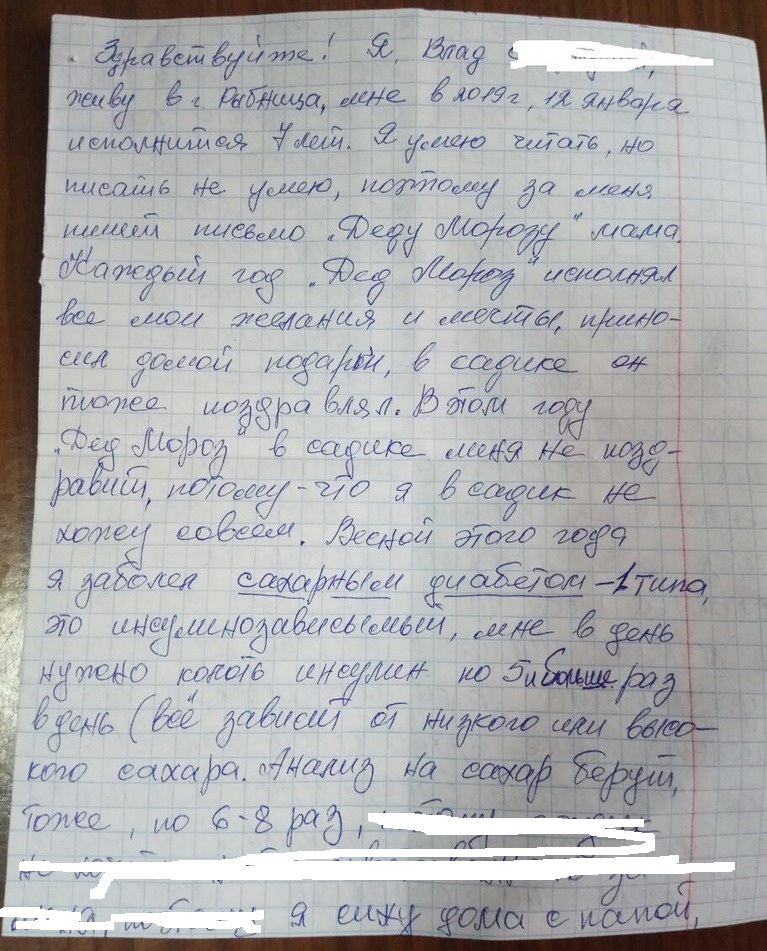 Здравствуйте! Я, Влад
живу в г Рыбница, мне в 2019г, 12 января
исполнится 7 лет. Я умею читать, но
писать не умею, поэтому за меня
пишет письмо „Деду Морозу" мама.
Каждый год „Дед Мороз" исполнял
все мои желания и мечты, прино-
сил домой подарки, в садике он
тоже поздравлял. В этом году
„Дед Мороз" в садике меня не позд-
равит, потому-что я в садик не
хожу совсем. Весной этого года
я заболел сахарным диабетом -1 типа,
это инсулинозависымый, мне в день
нужно колоть инсулин по 5 и больше раз
в день (всё зависит от низкого или высо-
кого сахара. Анализ на сахар берут,
тоже, по 6-8 раз,
я сижу дома с папой,